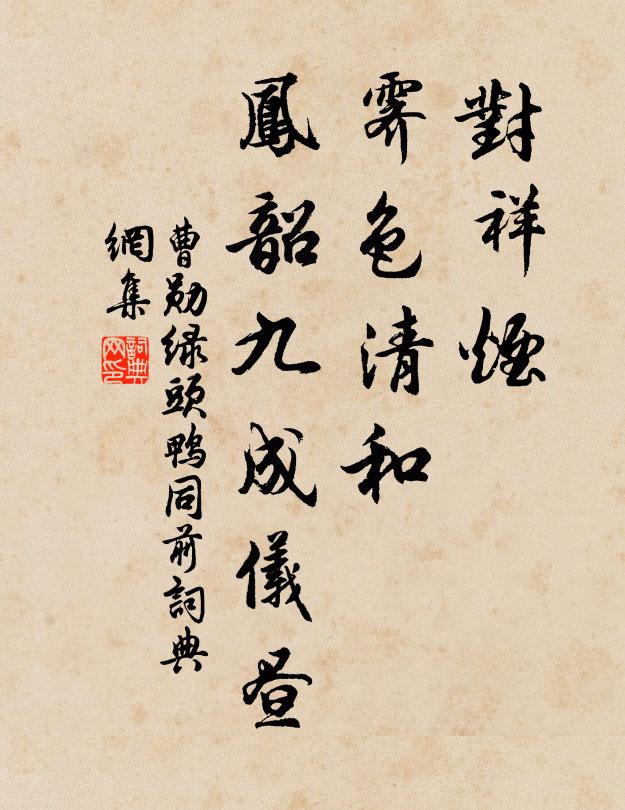 對祥煙
霽色清和
鳳韶九成儀昼
曹勛緑頭鴨同前詞典
網集
詞典
网印